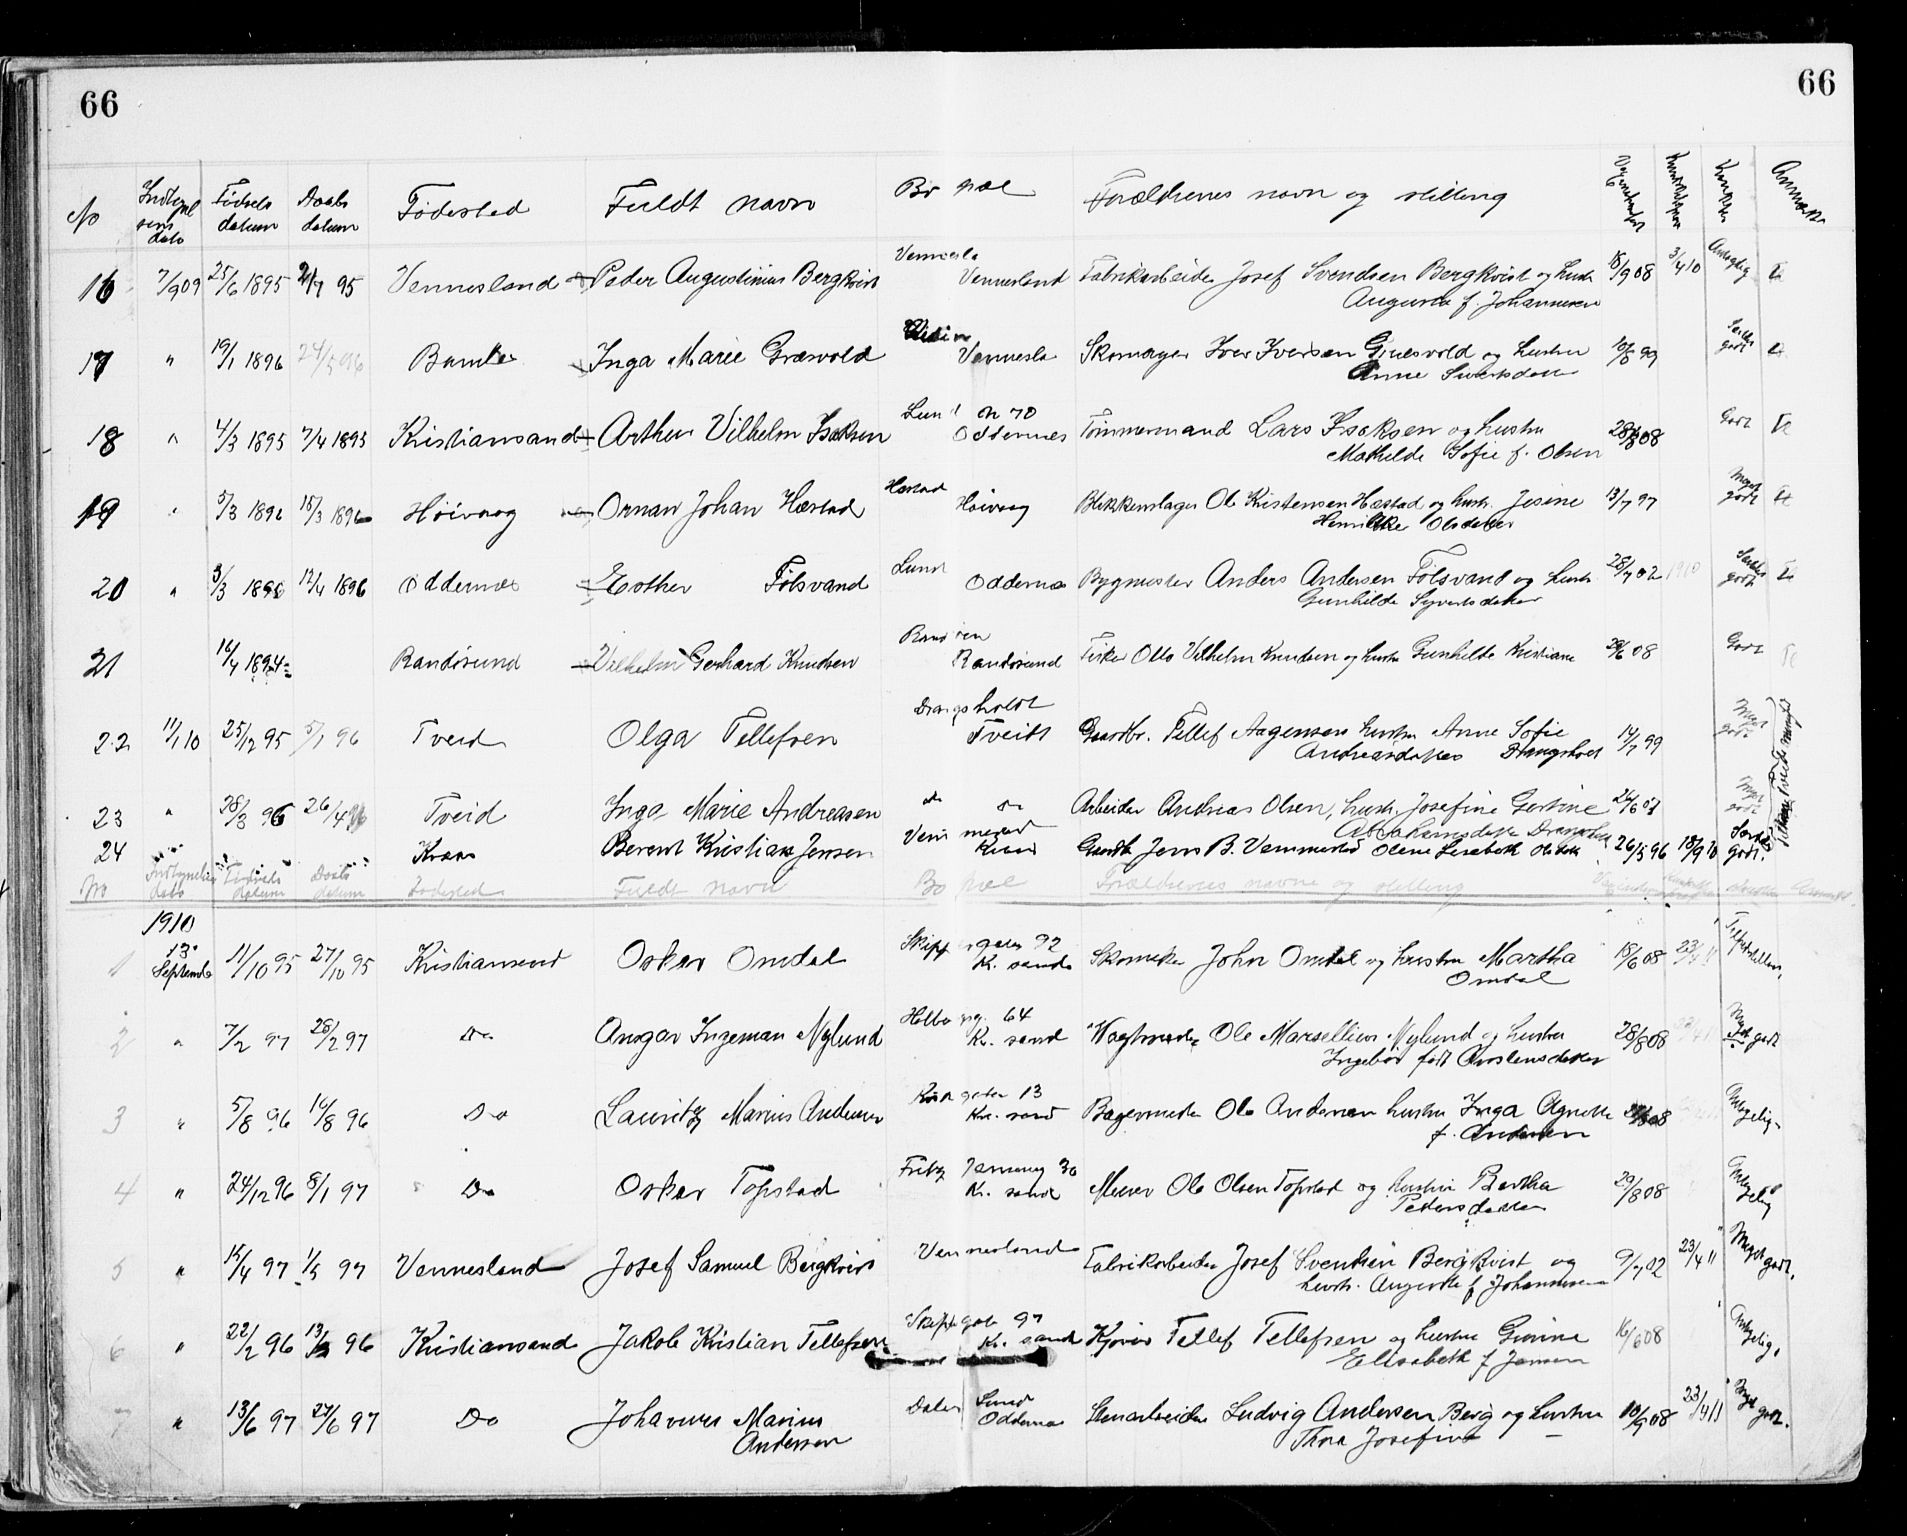 66 66
No Indtegnelsens dato Fødsels datum Daabs datum Fødested Fuldt navn Bopæl Forældrenes navn og stilling Anmærkn
16 7/9 09 25/6 1895 21/7 95 Vennesland Peder Augustinius Bergkvist Vennesla
Vennesland Fabrikarbeider Josef Svendsen Bergkvist og hustr
Augusta f. Johannesen 18/9 08 3/4 10 Antagelig
17 " 19/1 1896 24/5 96 Bamle Inga Marie Græsvold
Vennesla Skomager Iver Iversen Græsvold og hustru
Anne Sivertsdatter 10/8 99 Særdeles godt
18 " 4/3 1895 7/4 1895 Kristiansand Arthur Vilhelm Isaksen Lund N 70
Oddernes Tømmermand Lars Isaksen og hustru
Mathilde Sofie f. Olsen 28/8 08 Godt
19 " 5/3 1896 15/3 1896 Høivaag Ornan Johan Hæstad Hæstad
Høivaag Blikkenslager Ole Kristensen Hæstad og hustr. Jesine
Henrikke Olsdatter 13/7 97 Meget godt
20 " 3/3 1896 12/4 1896 Oddernes Esther Fölsvand Lund
Oddernes Bygmester Anders Andersen Fölsvand og hustr
Gunhilde Syvertsdatter 28/7 02 1910 Særdeles godt
21 16/4 1894 Randösund Vilhelm Gerhard Knudsen
Randösund Fisker Otto Vilhelm Knudsen og hustru Gunhilde Kristiane 29/6 08 Godt
22 11/1 10 25/12 95 5/1 96 Tveid Olga Tellefsen Drangsholdt
Tveidt Gaardbr. Tellef Aagensen hustru Anne Sofie
Andreasdatter Drangsholt 14/7 99 Meget godt
23 " 28/3 96 26/4 96 Tveid Inga Marie Andreasen do do Arbeider Andreas Olsen, hustr. Josefine Gestine
Abrahamsdatter Drangsholt Meget godt
24 " Berent Kristian Jensen Gaardb Jens B. Vemmestad Olene Lisabeth 26/5 96 18/9 10 Særdeles godt.
No Indtegnelses dato Fødsels datum Daabs datum Fødested Fuldt navn Bopæl Forældrenes navne og stilling
1910
1 13 September 11/10 95 27/10 95 Kristiansand Oskar Omdal Skippergaten 92
Kr. sand Skomaker John Omdal og hustru Martha
Omdal 18/6 08 23/4 11 Tilfredsstillende.
2 " 7/2 97 28/2 97 Do Ansgar Ingeman Nylund Holbergg. 64
Kr. sand Vagtmester Ole Marsellius Nylund og hustru
Ingebör født Carstensdatter 28/8 08 Meget godt
3 " 5/8 96 16/8 96 Do Lauritz Marius Andersen gaten 13
Kr. sand Bagermester Ole Andersen hustru Inga Agnette
f. Andersen Antagelig
4 " 24/12 96 8/1 97 Do Oskar Topstad Fritz Jensensg 30
Kr. sand Murer Ole Olsen Topstad og hustru Bertha
Pedersdatter 29/8 08 Antagelig
5 " 15/4 97 1/5 97 Vennesland Josef Samuel Bergkvist Vennesland Fabrikarbeider Josef Svendsen Bergkvist og
hustr. Augusta f. Johannesen 9/7 02 23/4 11 Meget godt.
6 " 22/2 96 13/3 96 Kristiansand Jakob Kristian Tellefsen Skippergate 97
Kr. sand Kjører Tellef Tellefsen og hustru Gurine
Elisabeth f Jensen 16/6 08 Antagelig.
7 " 13/6 97 27/6 97 Do Johannes Marius
Andersen Dalen Lund
Oddernes Stenarbeider Ludvig Andersen Berg og hustru
Thora Josefine 10/9 08 23/4 11 Meget godt.